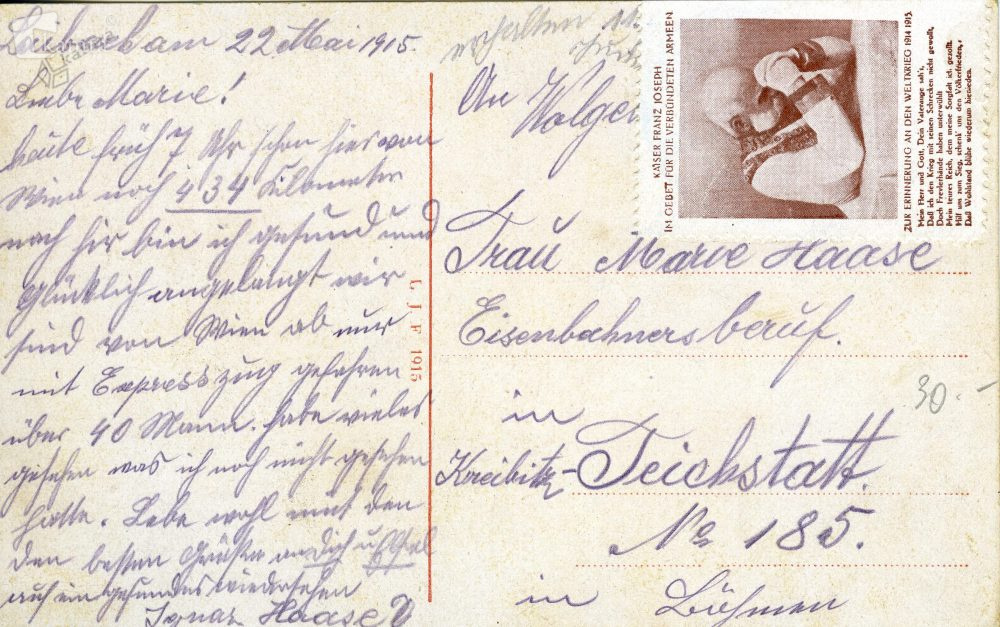 Laibach am 22 Mai 1915.
Liebe Marie!
heute früh 7 Uhr schon hier von
Wien noch 434 Kilometer
nach hir bin ich gesund und
Glücklich angelangt wir
sind von Wien ab nur
mit Expresszug gefahren
über 40 Mann. habe vieles
gesehen was ich noch nicht gesehen
hatte. Lebe wohl mit den
den besten Grüßen an dich u
auf ein gesundes wiedersehen
Ignaz Haase
L J F 1915
erhalten
An
Frau Marie Haase
Eisenbahnersberuf.
in
Kreibitz-Teichstatt.
No 185.
in Böhmen
30.-
KAISER FRANZ JOSEPH
IM GEBET FÜR DIE VERBÜNDETEN ARMEEN
ZUR ERINNERUNG AN DEN WELTKRIEG 1914 1915.
Mein Herr und Gott, Dein Vaterauge sah's,
Daß ich den Krieg mit seinen Schrecken nicht gewollt,
Doch Frevlerhände haben unterwühlt
Mein teures Reich, dem meine Sorgfalt ich gezollt.
Hilf uns zum Sieg, schenk' uns den Völkerfrieden,
Daß Wohlstand blühe wiederum hienieden.